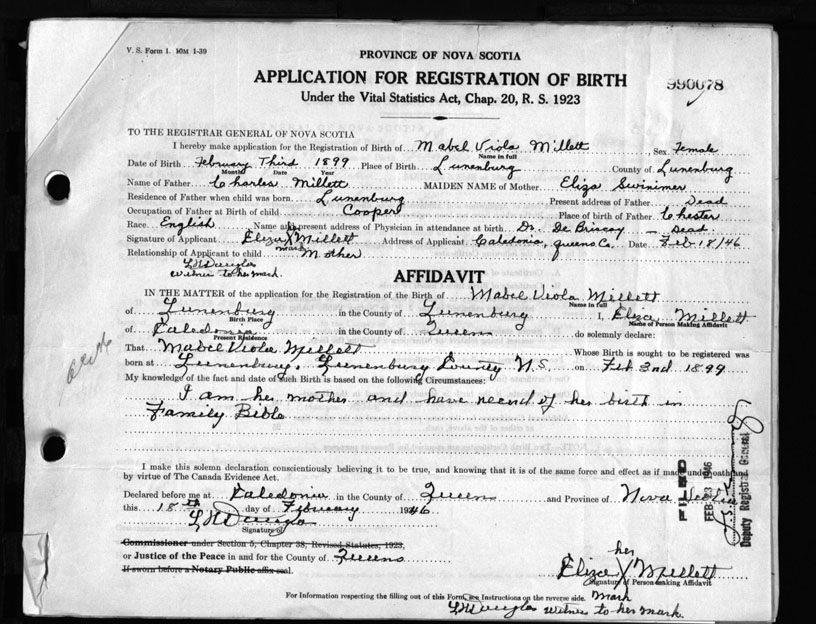 V. S. Form 1. 10M 1-39
PROVINCE OF NOVA SCOTIA
APPLICATION FOR REGISTRATION OF BIRTH
990078
Under the Vital Statistics Act, Chap. 20, R. S. 1923
TO THE REGISTRAR GENERAL OF NOVA SCOTIA
I hereby make application for the Registration of Birth of Mabel Viola Millett, Sex Female
Name in full
Date of Birth February Third 1899 Place of Birth Lunenburg County of Lunenburg
Month Date Year
Name of Father Charles Millett MAIDEN NAME of Mother Eliza Swinimer
Residence of Father when child was born Lunenburg Present address of Father Dead
Occupation of Father at Birth of child Cooper Place of birth of Father Chester
Race English Name and present address of Physician in attendance at birth Dr. De Briscay - Dead
Signature of Applicant Eliza her X mark Millett Address of Applicant Caledonia, Queens Co. Date Feb 18/46
Relationship of Applicant to child Mother
witness to her mark.
AFFIDAVIT
IN THE MATTER of the application for the Registration of the Birth of Mabel Viola Millett
Name in full
of Lunenburg in the County of Lunenburg I, Eliza Millett
Birth Place Name of Person Making Affidavit
of Caledonia in the County of Queens do solemnly declare:
Present Residence
That Mabel Viola Millett Whose Birth is sought to be registered was
born at Lunenburg, Lunenburg County N.S. on Feb 3rd 1899
My knowledge of the fact and date of such Birth is based on the following Circumstances:
I am her mother and have record of her birth in
Family Bible
I make this solemn declaration conscientiously believing it to be true, and knowing that it is of the same force and effect as if made under oath and
by virtue of The Canada Evidence Act.
Declared before me at Caledonia in the County of Queens and Province of Nova Scotia
this 18th day of February 1946
Signature of
Commissioner under Section 5, Chapter 38, Revised Statutes, 1923,
or Justice of the Peace in and for the County of Queens
If sworn before a Notary Public affix seal.
her
Eliza X Millett
Signature of Person making Affidavit
mark
For Information respecting the filling out of this Form, see Instructions on the reverse side.
witness to her mark.
FILED
FEB 23 1946
Deputy Registrar General